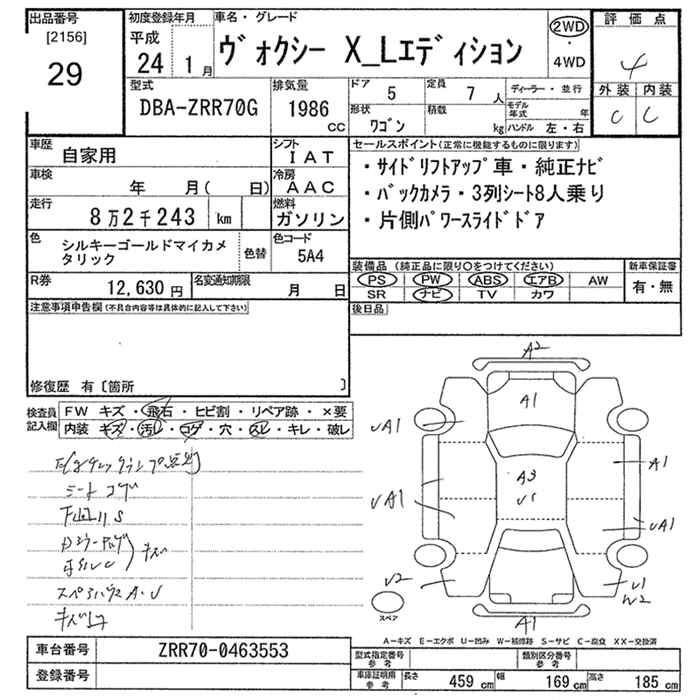 出品番号 初度登録年月 車名・グレード 評価点
[2156] 平成
29 24 年 1 月 ヴォクシー X_Lエディション 2WD・4WD 4
型式 排気量 ドア 定員 ディーラー・並行 外装 内装
DBA-ZRR70G 1986 cc 5 7 人 モデル年式 年 C C
形状 積載
ワゴン kg ハンドル 左・右
車歴 自家用 シフト IAT セールスポイント(正常に機能するものに限ります)
車検 年 月( 日) 冷房 AAC ・サイドリフトアップ車・純正ナビ
走行 8万2千243 km 燃料 ガソリン ・バックカメラ・3列シート8人乗り
・片側パワースライドドア
色 シルキーゴールドマイカメタリック 色替 色コード 5A4
装備品 (純正品に限り○をつけてください) 新車保証書
R券 12,630 円 名変通知期限 月 日 PS PW ABS エアB AW 有・無
SR ナビ TV カワ
注意事項申告欄(不具合内容等は具体的に記入して下さい) 後日品
修復歴 有〔箇所 〕
検査員記入欄 FW キズ・飛石・ヒビ割・リペア跡・×要
内装 キズ・汚レ・コゲ・穴・スレ・キレ・破レ
シートコゲ
キズ
A2
A1
UA1
A1
A3
U1
UA1
UA1
U2
U1
W2
A1
スペア
A-キズ E-エクボ U-凹み W-補修跡 S-サビ C-腐食 XX-交換済
車台番号 ZRR70-0463553 型式指定番号 参考 類別区分番号 参考
登録番号 車庫証明用 参考 長さ 459 cm 幅 169 cm 高さ 185 cm